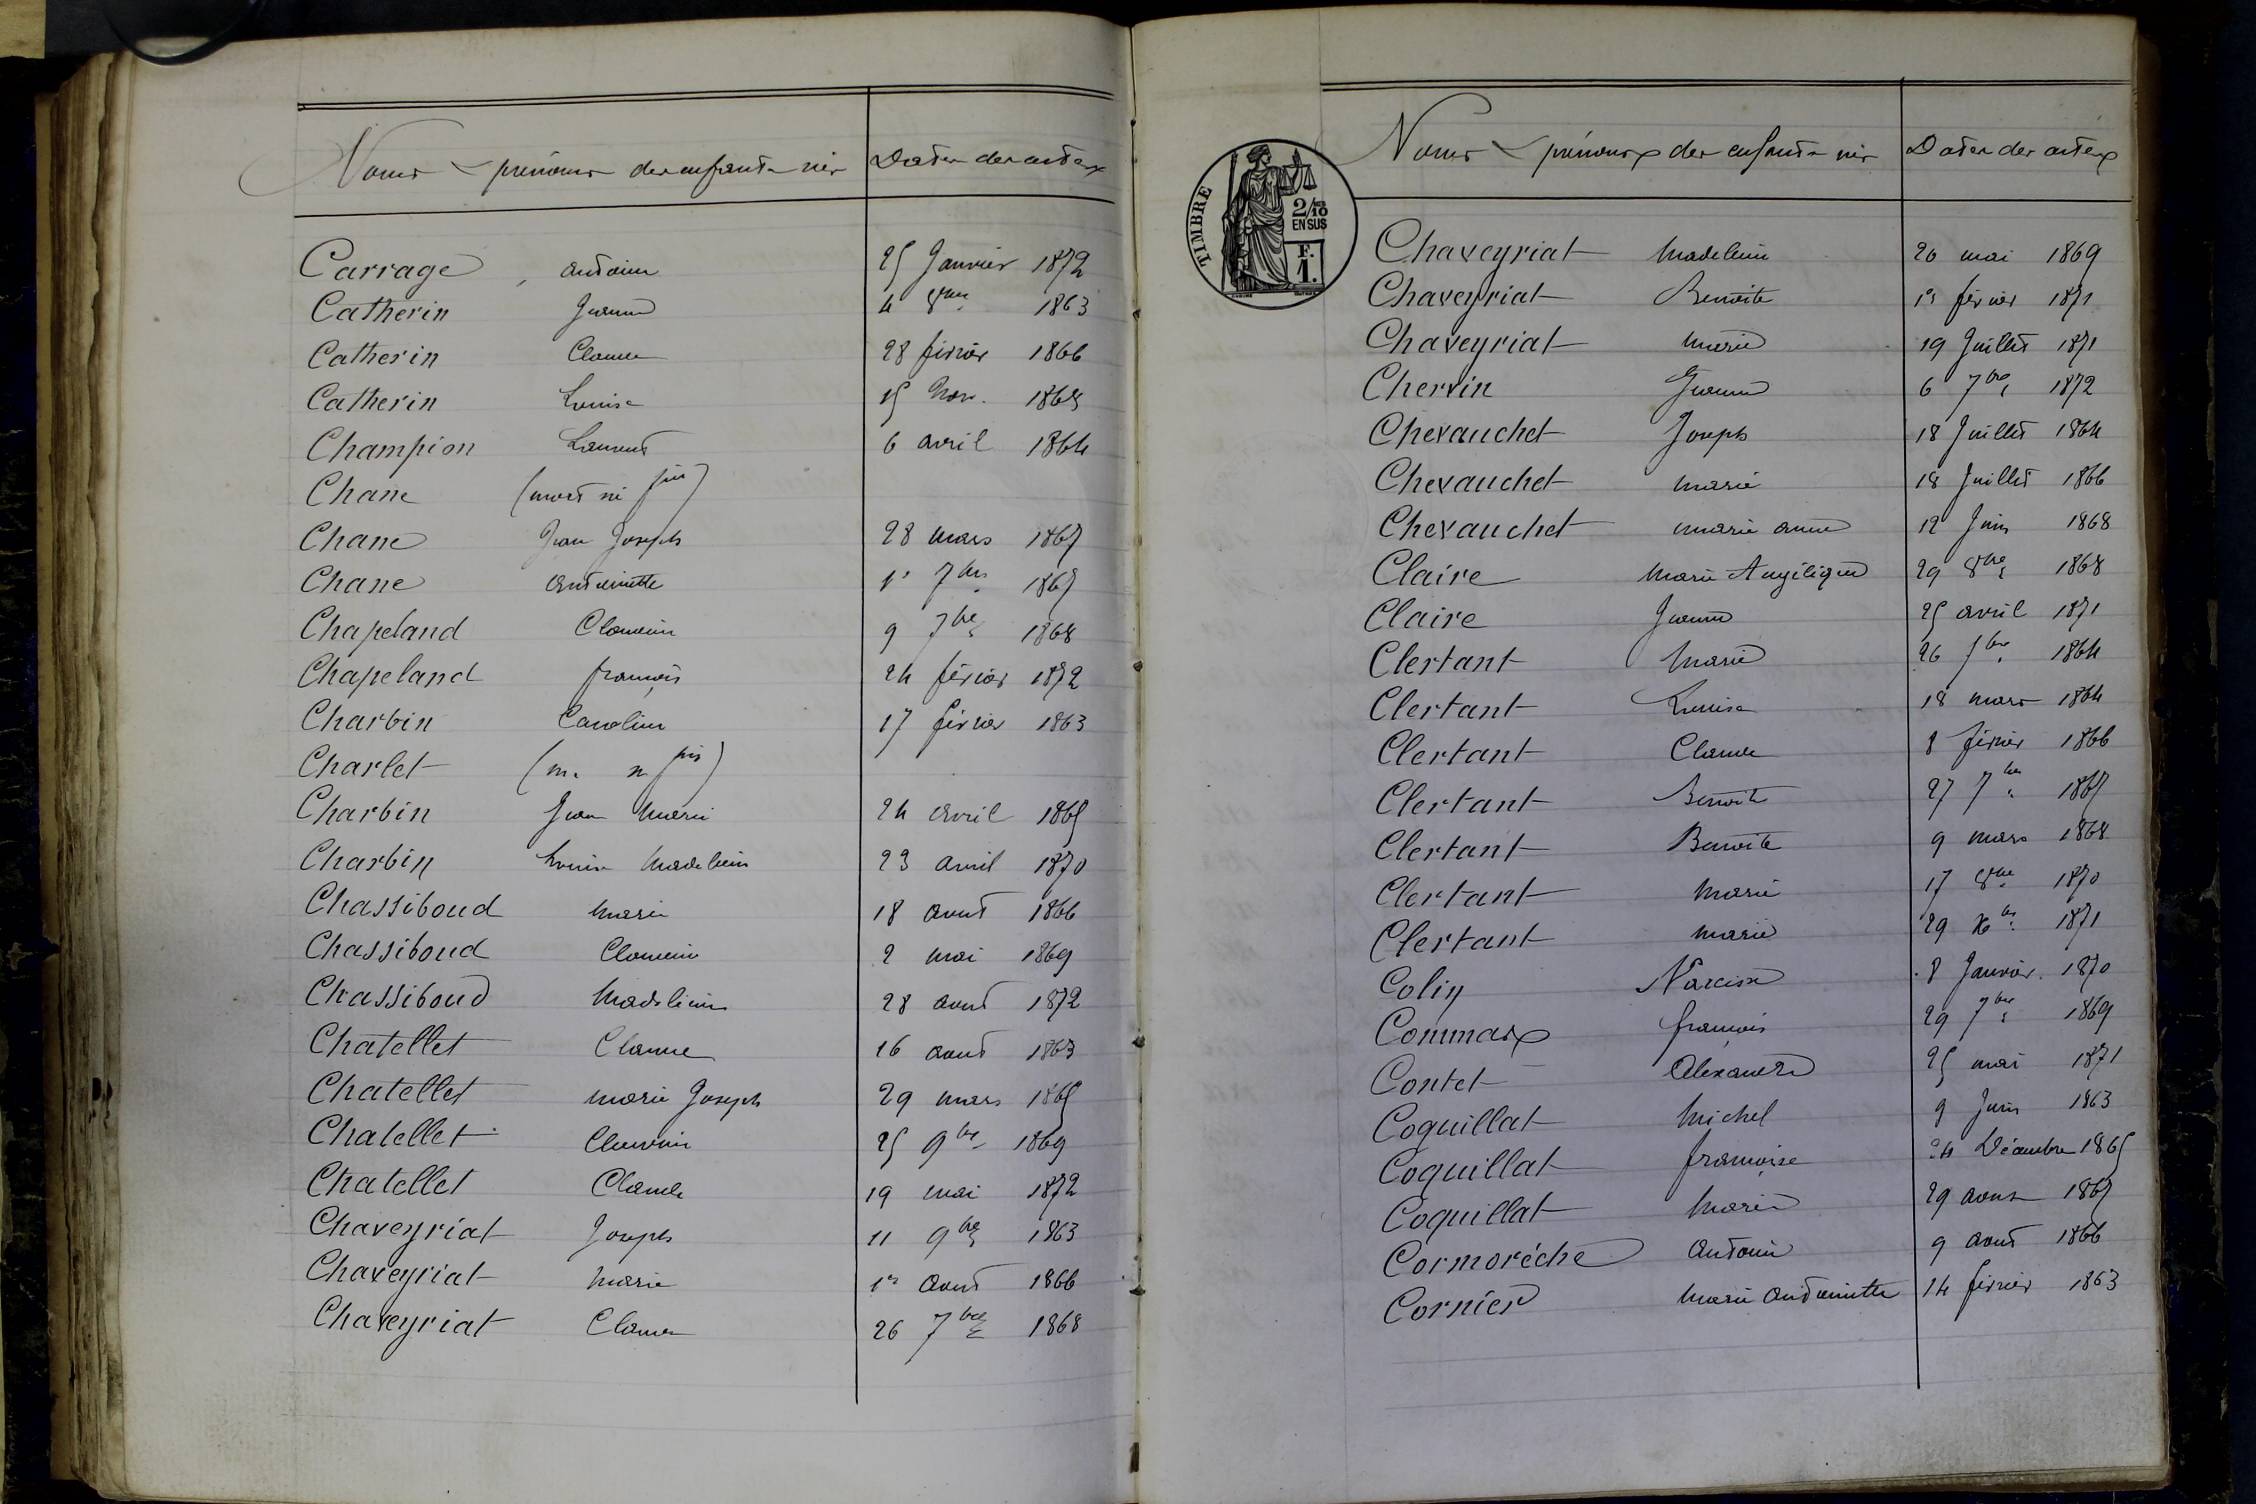 Noms & prénoms des enfants nés Dates des actes
Carrage, antoine 25 Janvier 1872
Catherin Jeanne 4 8bre 1863
Catherin Claude 28 février 1866
Catherin Louise 15 Nov. 1868
Champion Laurent 6 avril 1864
Chane (mort né fin)
Chane Jean Joseph 28 mars 1867
Chane antoinette 1r 7bre 1867
Chapeland Claudine 9 7bre 1868
Chapeland françois 24 février 1872
Charbin Caroline 17 février 1863
Charlet (m. n fin)
Charbin Jean Marie 24 avril 1865
Charbin Louise Madeleine 23 avril 1870
Chassiboud Marie 18 aout 1866
Chassiboud Claudine 2 mai 1869
Chassiboud Madeleine 28 aout 1872
Chatellet Claude 16 aout 1863
Chatellet marie Joseph 29 mars 1865
Chatellet Claudine 25 9bre 1869
Chatellet Claude 19 mai 1872
Chaveyriat Joseph 11 9bre 1863
Chaveyriat Marie 1er aout 1866
Chaveyriat Claude 26 7bre 1868
TIMBRE
2/10 EN SUS
F. 1.
Noms & prénoms des enfants nés Dates des actes
Chaveyriat Madeleine 20 mai 1869
Chaveyriat Benoite 1er février 1871
Chaveyriat Marie 19 Juillet 1871
Chervin Jeanne 6 7bre 1872
Chevauchet Joseph 18 Juillet 1864
Chevauchet Marie 18 Juillet 1866
Chevauchet Marie anne 12 Juin 1868
Claire Marie Angélique 29 8bre 1868
Claire Jeanne 25 avril 1871
Clertant Marie 26 7bre 1864
Clertant Louise 18 mars 1864
Clertant Claude 8 février 1866
Clertant Benoite 27 7bre 1867
Clertant Benoite 9 mars 1868
Clertant Marie 17 8bre 1870
Clertant Marie 29 Xbre 1871
Colin Narcisse 8 Janvier 1870
Commarx françois 29 7bre 1869
Contet Alexandre 25 mai 1871
Coquillat Michel 9 Juin 1863
Coquillat françoise 24 Décembre 1865
Coquillat Marie 29 aout 1867
Cormorèche Antoine 9 aout 1866
Cornier Marie Antoinette 14 février 1863